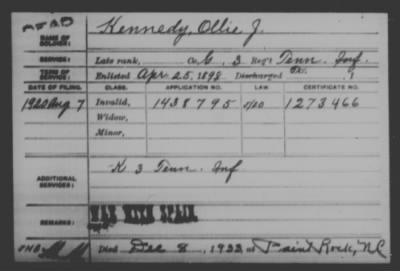 DEAD
NAME OF SOLDIER: Kennedy, Ollie J.
SERVICE: Late rank, Co. G, 3 Reg't Tenn. Inf.
TERM OF SERVICE: Enlisted Apr. 25, 1898, Discharged
DATE OF FILING. CLASS. APPLICATION NO. LAW. CERTIFICATE NO.
1920 Aug 7 Invalid, 1438795 1273466
Widow,
Minor,
ADDITIONAL SERVICES: K 3 Tenn. Inf
REMARKS: WAR WITH SPAIN.
Died Dec 8, 1933 at Paint Rock, NC